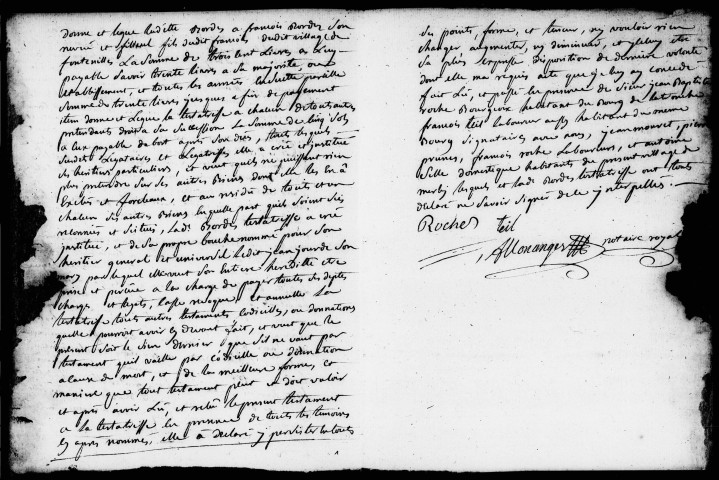 donne et legue laditte Bordes a françois Bordes son
neveu et filleul fils dudit françois dudit village de
fontenilles La Somme de trois cent Livres a luy
payable Savoir trente livres a Sa majorité, ou
etablissement, et toutes les années ensuitte pareille
Somme de trente livres jusques a fin de payement
item donne et Legue la testatrisse a chacun de tous autres
pretendants droit a Sa Succession La Somme de cinq Sols
a eux payable de bort après Son dezès, touts lesquels
Susdits Legataires et Legatrisses elle a créé et institué
Ses heritiers particuliers, et veut quils ne puissent rien
plus pretendre Sur Ses autres Biens dont elle les en a
Exclus et forclaux, et au residu de touts et un
chacun Ses autres Biens en quelle part quils Soint Sis
reconnus et Situés, Lade. Bordes testatrisse a créé
institué, et de Sa propre bouche nommé pour Son
heritier general et universel Ledit jean jourde Son
par lequel elle veut Son Entiere heredité etre
prise et percüe a la charge de payer toutes Ses dettes
charges et Legats, Casse revoque et annulle La
testatrisse touts autres testaments codicilles, ou donnations
quelle pourroit avoir cy devant fait, et veut que le
present Soit le Sien dernier que Sil ne vaut par
testament quil vaille par codicille ou donnation
a cause de mort, et de la meilleure forme, et
maniere que tout testament peut et doit valoir
et après avoir Lû, et relû le present testament
a la testatrisse en presence de touts les temoins
cy après nommés, elle a declaré y persister en touts
Ses points, forme, et teneur, ny vouloir rien
changer augmenter, ny diminuer, et etre
Sa plus expresse disposition de derniere volonté
dont elle ma requis acte que je luy ay concedé
fait Lû, et passé en presence de Sieur jean Baptiste
roche Bourgeois habitant du Bourg de
françois teil Laboureur aussy habitant du meme
Bourg Signataires avec nous, jean mouret, pierre
prunes, françois roche Laboureurs, et antoine
domestique habitants du present village de
Lesquels et lade Bordes testatrisse ont touts
declaré ne Savoir Signer de ce interpellés.
Roche teil
notaire royal